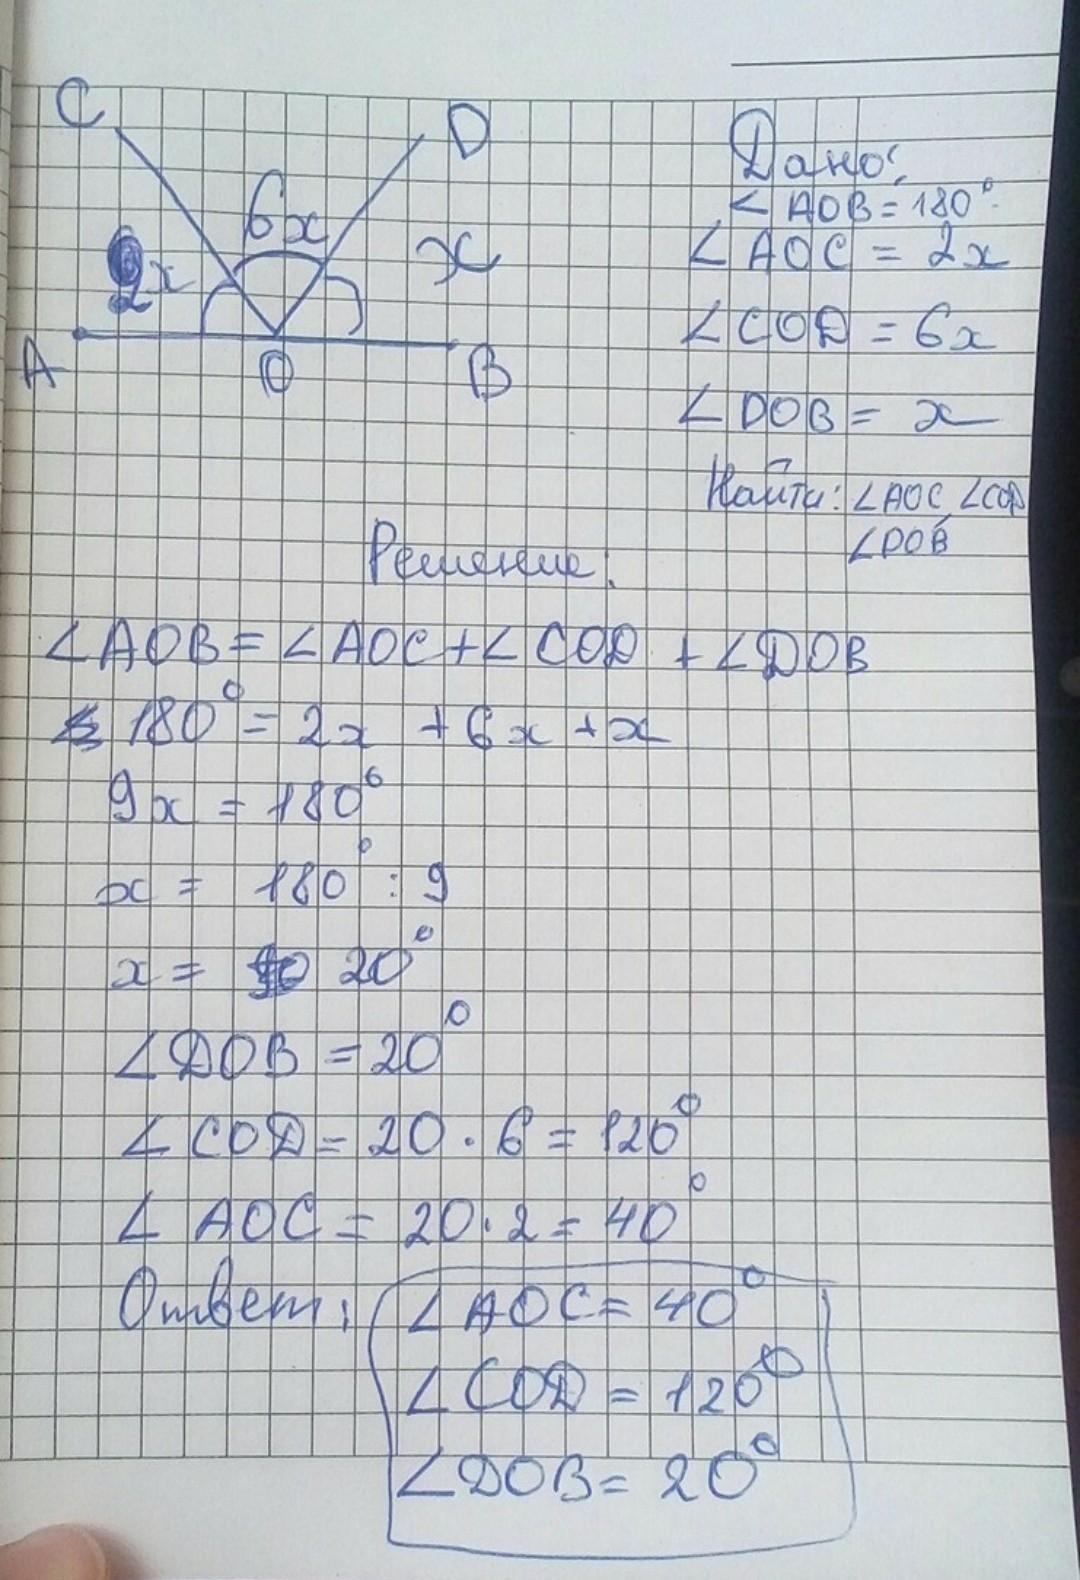 C D
6x
2x x
A O B
Дано:
∠AOB = 180°
∠AOC = 2x
∠COD = 6x
∠DOB = x
Найти: ∠AOC, ∠COD
∠DOB
Решение:
∠AOB = ∠AOC + ∠COD + ∠DOB
180° = 2x + 6x + x
9x = 180°
x = 180° : 9
x = 20°
∠DOB = 20°
∠COD = 20 · 6 = 120°
∠AOC = 20 · 2 = 40°
Ответ: ∠AOC = 40°
∠COD = 120°
∠DOB = 20°